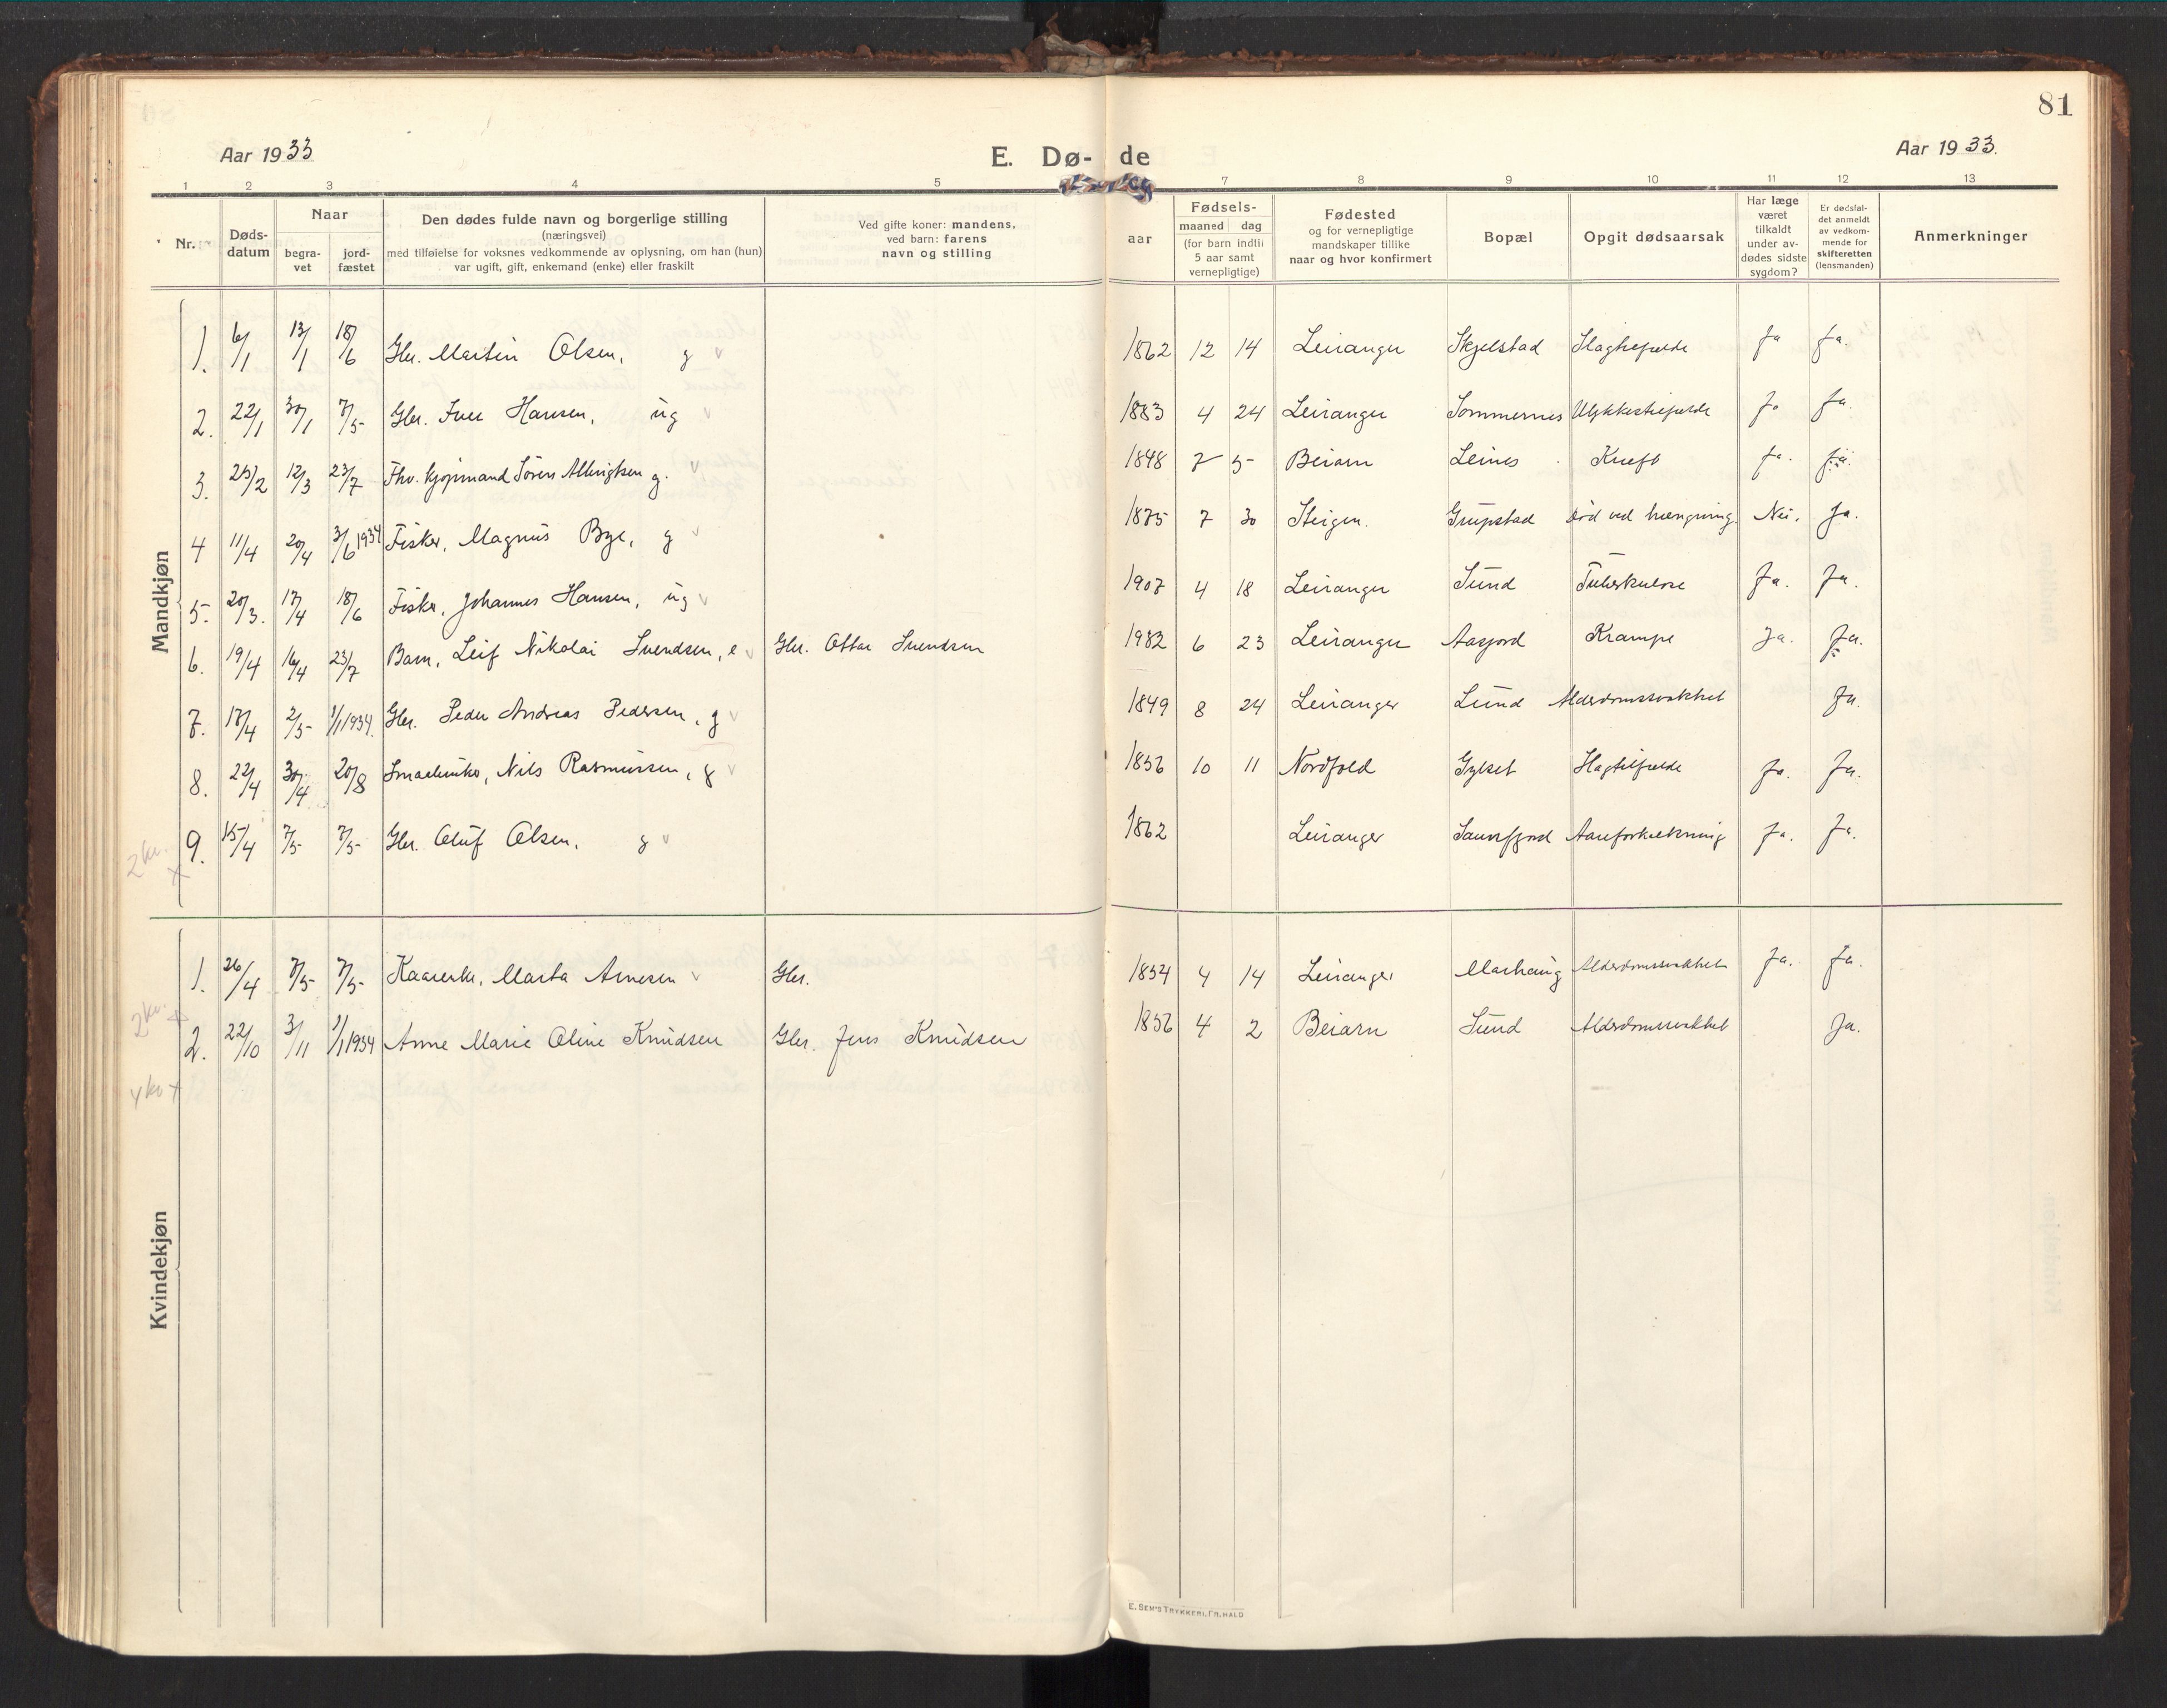 81
Aar 1933 E. Dø- de Aar 1933.
1 2 3 4 5 7 8 9 10 11 12 13
Nr. Døds-datum Naar begra-vet jord-fæstet Den dødes fulde navn og borgerlige stilling (næringsvei) med tilføielse for voksnes vedkommende av oplysning, om han (hun) var ugift, gift, enkemand (enke) eller fraskilt Ved gifte koner: mandens, ved barn: farens navn og stilling aar Fødsels- maaned dag (for barn indtil 5 aar samt vernepligtige) Fødested og for vernepligtige mandskaper tillike naar og hvor konfirmert Bopæl Opgit dødsaarsak Har læge været tilkaldt under av-dødes sidste sygdom? Er dødsfal-det anmeldt av vedkom-mende for skifteretten (lensmanden) Anmerkninger
Mandkjøn
1. 6/1 13/1 18/6 Gbr. Martin Olsen, g v 1862 12 14 Leiranger Skjelstad Slagtilfælde Ja Ja.
2. 22/1 30/1 7/5 Gbr. Iver Hansen, ug v 1883 4 24 Leiranger Sommernes Ulykkestilfælde Ja Ja
3. 25/2 12/3 23/7 Fhv. kjøpmand Sören Albrigtsen g. v 1848 7 5 Beiarn Leines Kreft Ja. Ja.
4 11/4 20/4 3/6 1934 Fisker, Magnus Bye, g v 1875 7 30 Steigen. Grupstad Død ved hængning. Nei. Ja.
5. 20/3. 17/4 18/6 Fisker, Johannes Hansen, ug v 1907 4 18 Leiranger Sund Tuberkulose Ja. Ja.
6. 19/4 16/4 23/7 Barn, Leif Nikolai Svendsen, e v Gbr. Ottar Svendsen 1932 6 23 Leiranger Aasjord Krampe Ja. Ja.
7. 17/4 2/5 1/1 1934. Gbr. Peder Andreas Pedersen, g v 1849 8 24 Leiranger Lund Alderdomssvakhet Ja.
8. 22/4 30/4 20/8 Smaabruker, Nils Rasmussen, g v 1856 10 11 Nordfold Gylset Slagtilfælde Ja. Ja.
9. 15/4 7/5 7/5 Gbr. Oluf Olsen, g v 1862 Leiranger Saursfjord Aareforkalkning Ja. Ja.
2 kv. x
Kvindekjøn
1. 26/4 7/5 7/5 Kaarenke, Marta Arnesen v Gbr. 1854 4 14 Leiranger Marhaug Alderdomssvakhet Ja. Ja.
2 kv. x
2. 22/10 3/11 1/1 1934 Anne Marie Oline Knudsen Gbr. Jens Knudsen 1856 4 2 Beiarn Sund Alderdomssvakhet Ja.
4 kv x
E. SEM'S TRYKKERI, FR.HALD